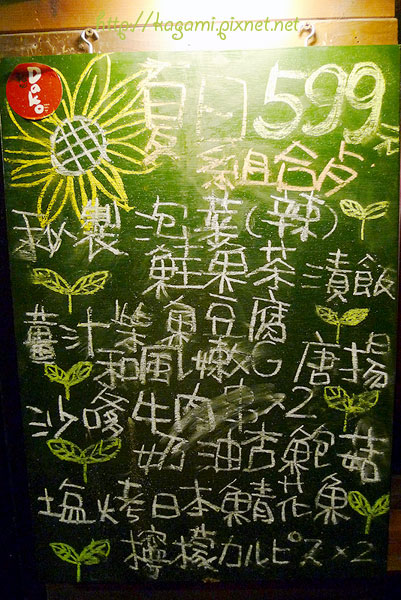 http://kagami.pixnet.net
Dako
夏日599元
組合餐
秘製泡菜(辣)
鮭魚茶漬飯
薑汁柴魚豆腐
和風嫩G唐揚
沙嗲牛肉串×2
奶油杏鮑菇
塩烤日本鯖花魚
檸檬カルピス×2